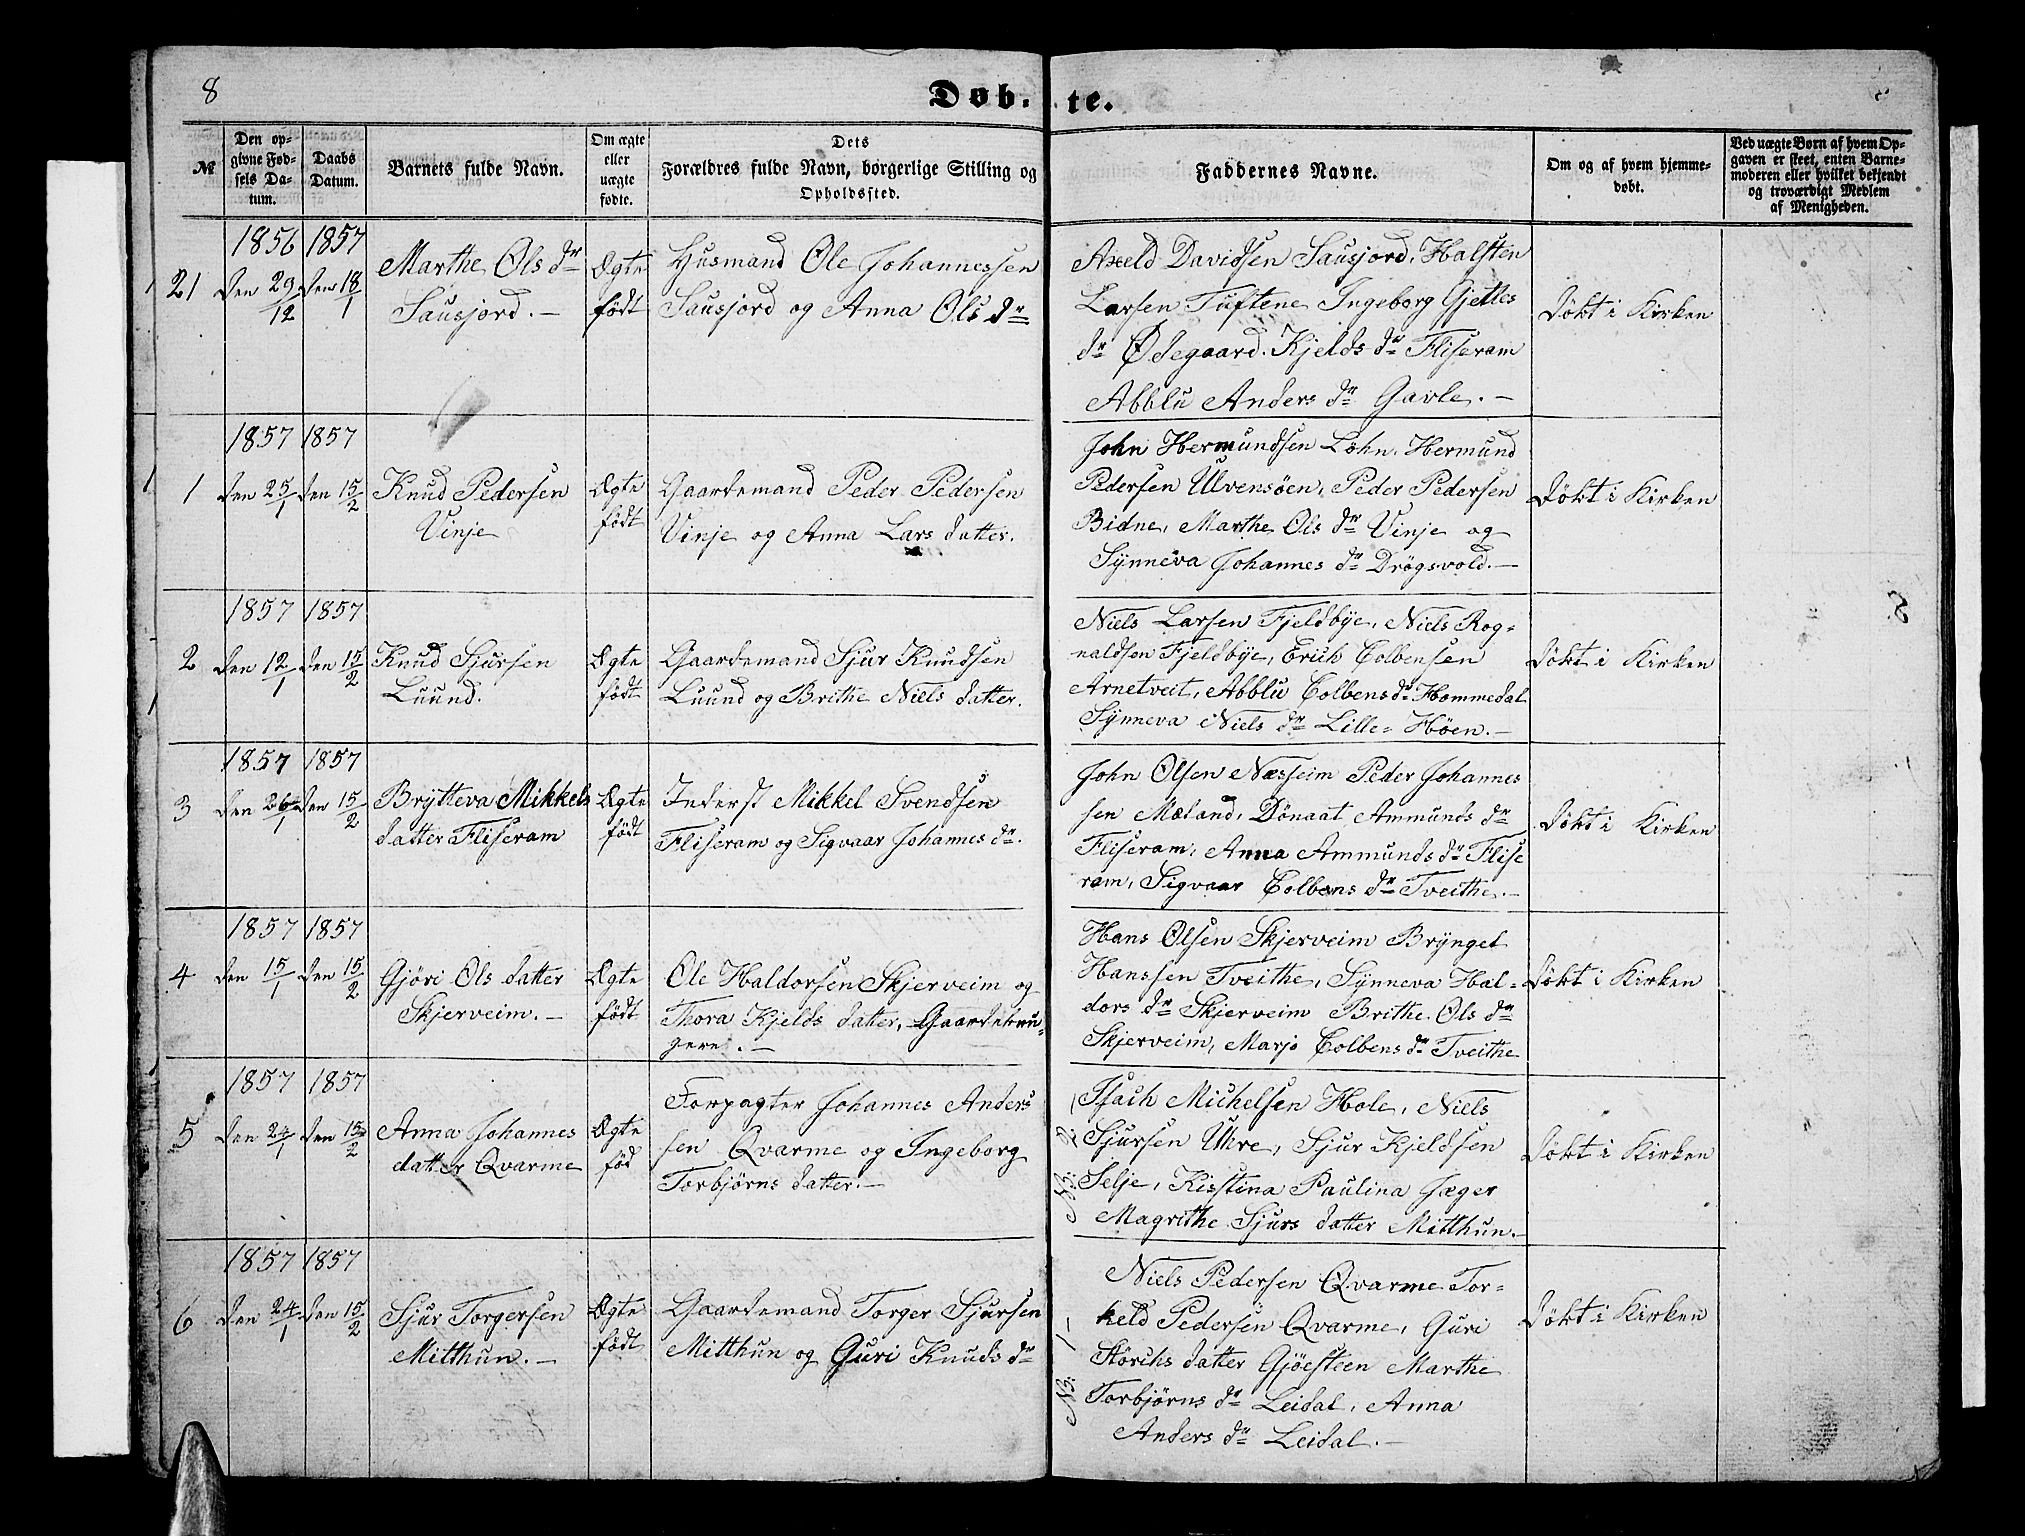 8
Døb. te.
№
Den op-
givne Fød-
sels Da-
tum.
Daabs
Datum.
Barnets fulde Navn.
Om ægte
eller
uægte
fødte.
Dets
Forældres fulde Navn, borgerlige Stilling og
Opholdssted.
Faddernes Navne.
Om og af hvem hjemme-
døbt.
Ved uægte Børn af hvem Op-
gaven er skeet, enten Barne-
moderen eller hvilket bekjendt
og troværdigt Medlem
af Menigheden.
1856 1857
21 den 29/12 den 18/1
Marthe Ols dr
Sausjord. —
Ægte
født
Husmand Ole Johannessen
Sausjord og Anna Ols dr
Axeld Davidsen Sausjord, Halsten
Larsen Tuftene Ingeborg Gjettes
dr Ødegaard. Kjelds dr Fliseram
Abblu Anders dr Gavle. —
Døbt i Kirken
1857 1857
1 den 25/1 den 15/2
Knud Pedersen
Vinje
Ægte
født
Gaardemand Peder Pedersen
Vinje og Anna Lars datter.
John Hermundsen Løhn. Hermund
Pedersen Ulvensøen, Peder Pedersen
Bidne, Marthe Ols dr Vinje og
Synneva Johannes dr Drøgsvold. —
Døbt i Kirken
1857 1857
2 den 12/1 den 15/2
Knud Sjursen
Luund.
Ægte
født
Gaardemand Sjur Knudsen
Luund og Brithe Niels datter.
Niels Larsen Fjeldbye, Niels Rog-
naldsen Fjeldbye, Erich Colbensen
Arnetveit, Abblu Colbens dr Hommedal
Synneva Niels dr Lille-Høen. —
Døbt i Kirken
1857 1857
3 den 26/1 den 15/2
Brytteva Mikkels
datter Fliseram
Ægte
født
Inderst Mikkel Svendsen
Fliseram og Sigvaar Johannes dr.
John Olsen Næsheim Peder Johannes
sen Mæland, Dønaat Ammunds dr
Fliseram, Anna Ammunds dr Flise
ram, Sigvaar Colbens dr Tveithe. —
Døbt i Kirken
1857 1857
4 den 15/1 den 15/2
Gjøri Ols datter
Skjerveim. —
Ægte
født
Ole Haldorsen Skjerveim og
Thora Kjelds datter, Gaardebru-
gere. —
Hans Olsen Skjerveim Brynget
Hanssen Tveithe, Synneva Hal-
dors dr Skjerveim Brithe Ols dr
Skjerveim, Marjo Colbens dr Tveithe
Døbt i Kirken
1857 1857
5 den 24/1 den 15/2
Anna Johannes
datter Qvarme
Ægte
fød
Forpagter Johannes Anders
sen Qvarme og Ingeborg
Torbjørns datter. —
NB: 2, Isach Michelsen Hole, Niels
Sjursen Ukre, Sjur Kjeldsen
Selje, Kisstina Paulina Jæger
Magrithe Sjurs datter Mitthun. —
Døbt i Kirken
1857 1857
6 den 24/1 den 15/2
Sjur Torgersen
Mitthun. —
Ægte
født
Gaardemand Torger Sjursen
Mitthun og Guri Knuds dr
NB: 1 Niels Pedersen Qvarme Tor-
keld Pedersen Qvarme, Guri
Størchs datter Gjøesteen Marthe
Torbjørns dr Leidal, Anna
Anders dr Leidal. —
Døbt i Kirken